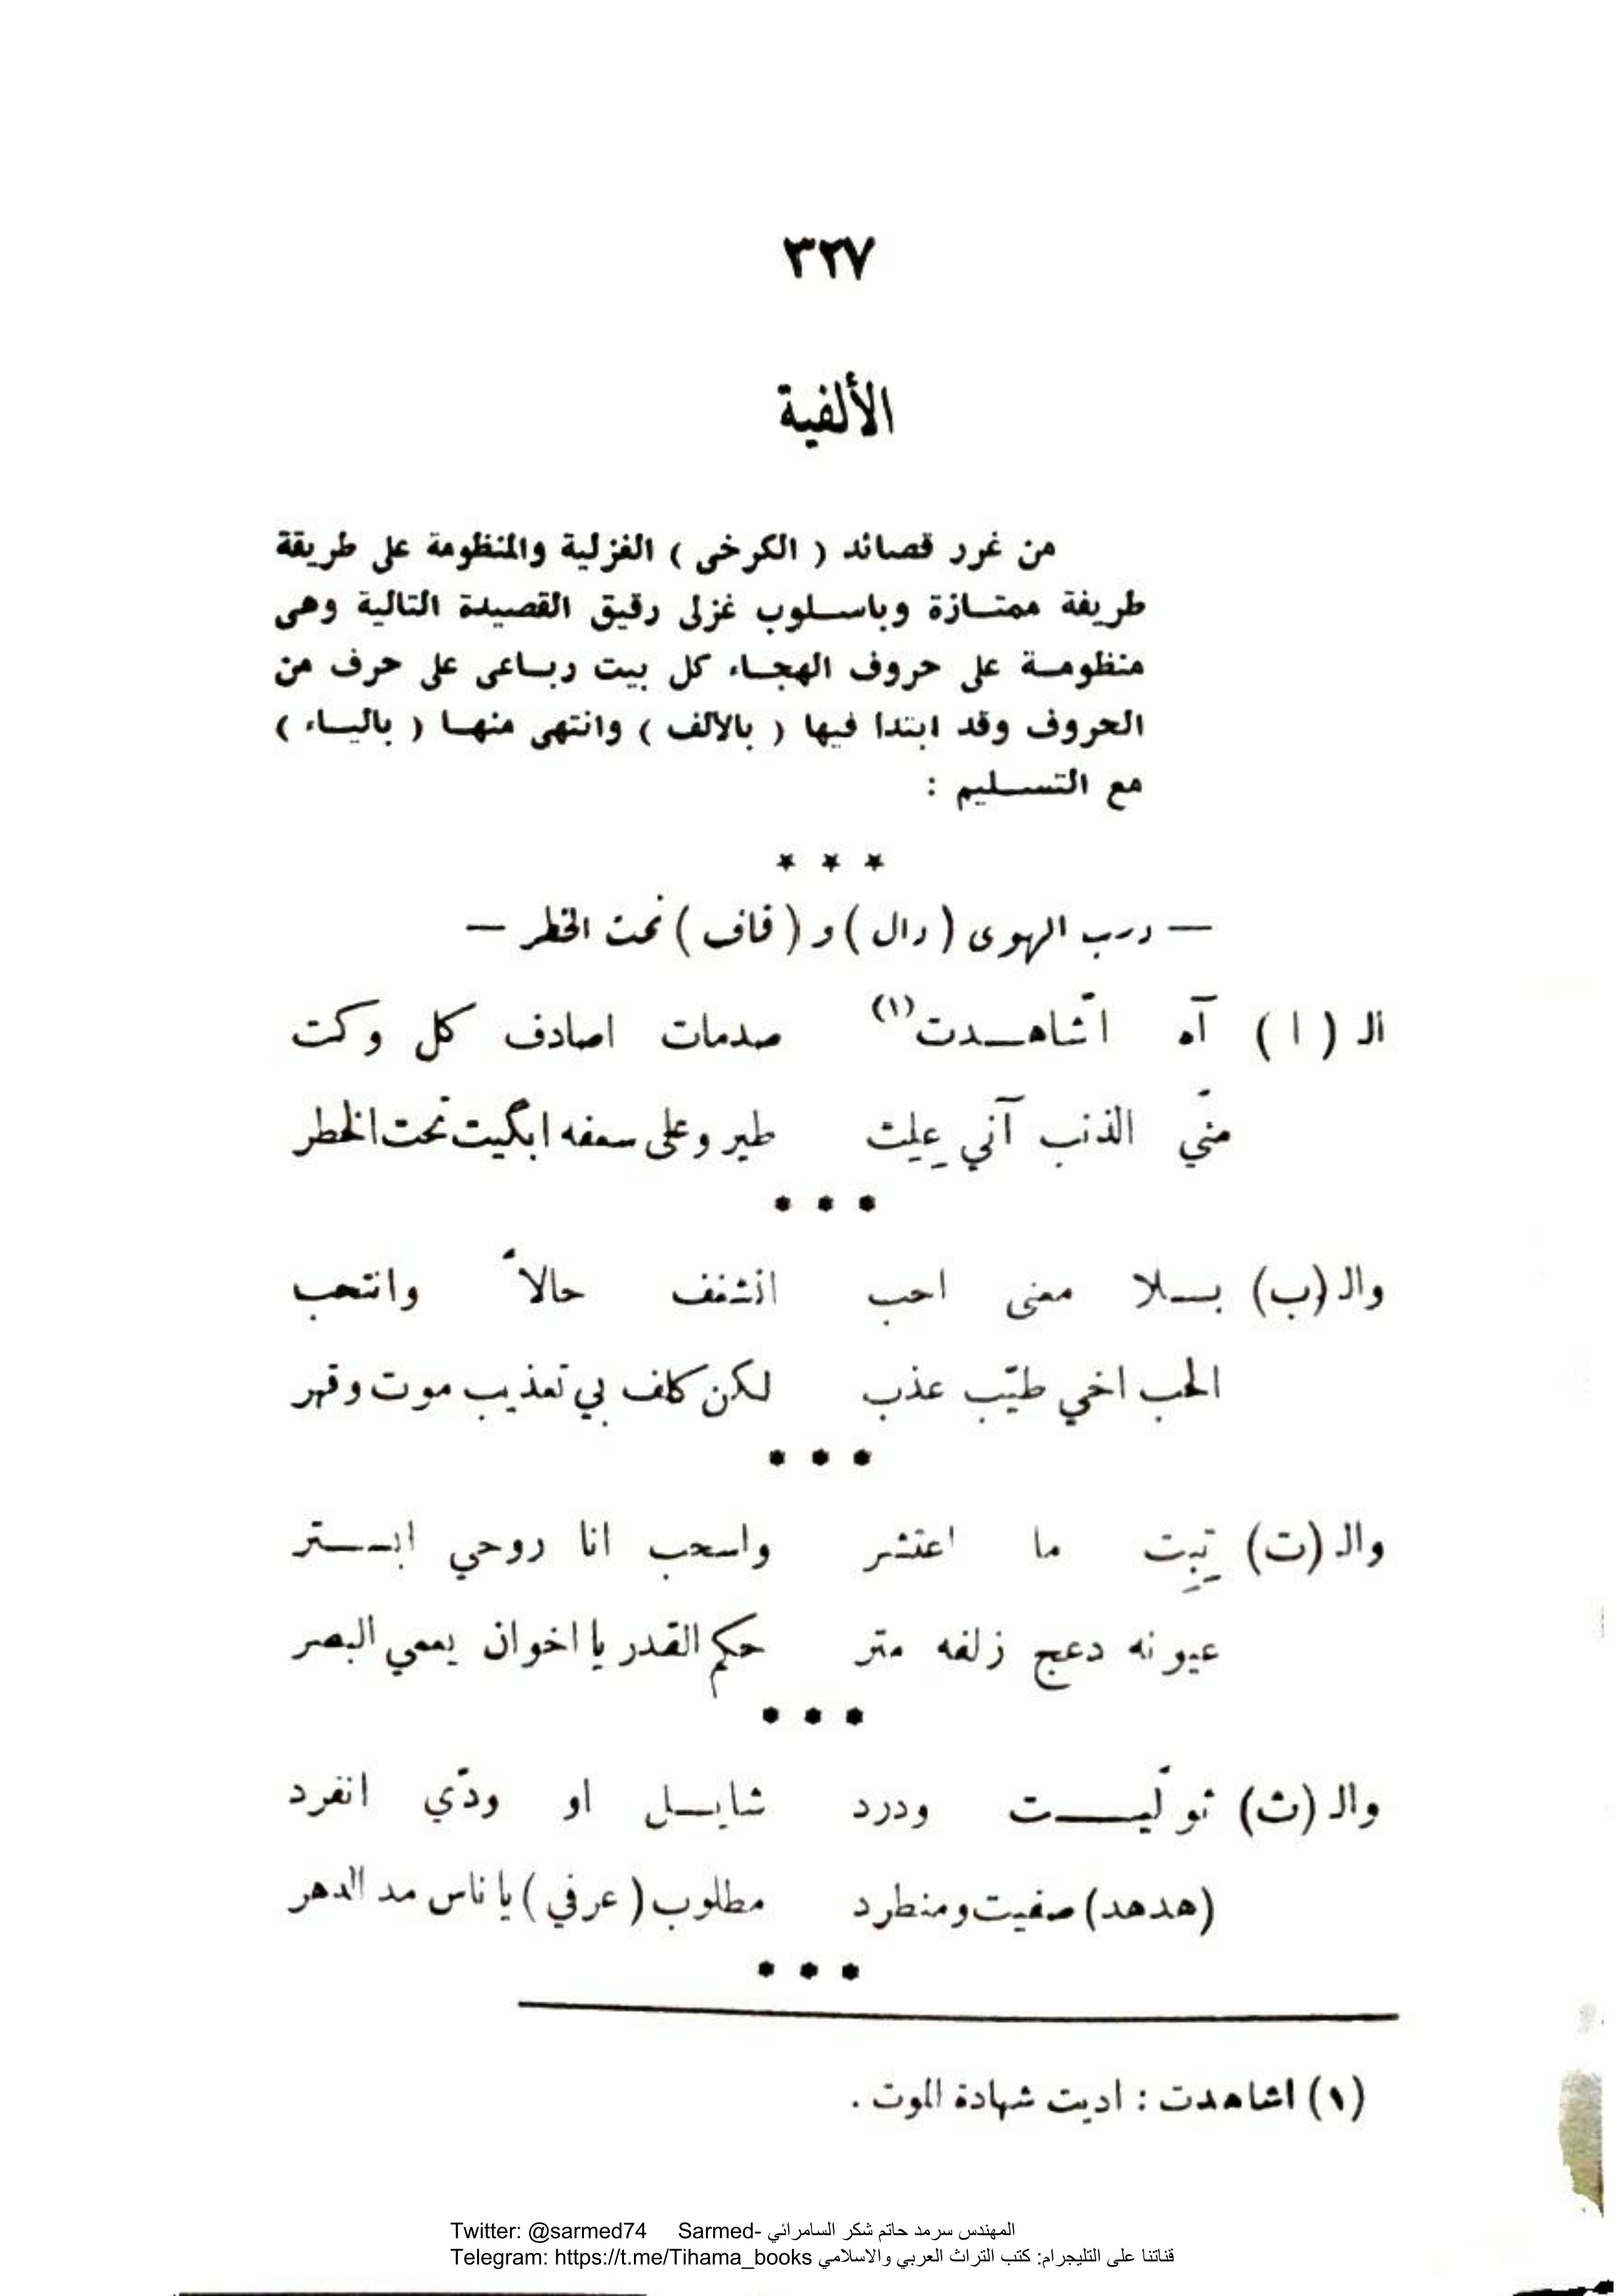 ٣٢٧
الألفية
من غرر قصائد ( الكرخى ) الغزلية والمنظومة على طريقة
طريفة ممتــازة وباســلوب غزلى رقيق القصيدة التالية وهى
منظومــة على حروف الهجــاء كل بيت ربــاعى على حرف من
الحروف وقد ابتدا فيها ( بالالف ) وانتهى منهــا ( باليــاء )
مع التســليم :
* * *
— درب الهوى ( دال ) و ( قاف ) تحت الخطر —
الـ ( ا ) آه اشّاهــدت(١) صدمات اصادف كل وكت
منّي الذنب آني عِلِت طير وعلى سعفه ابگيت تحت الخطر
* * *
والـ (ب) بــلا معنى احب انشغف حالاً وانتحب
الحب اخي طيّب عذب لكن كلف بي تعذيب موت وقهر
* * *
والـ (ت) تِبِت ما اعتشر واسحب انا روحي ابــتر
عيونه دعج زلفه متر حكم القدر يا اخوان يعمي البصر
* * *
والـ (ث) ثولّيــت ودرد شايــل او ودّي انفرد
(هدهد) صفيت ومنطرد مطلوب ( عرفي ) يا ناس مد الدهر
* * *
(١) اشاهدت : اديت شهادة الموت .
Twitter: @sarmed74 Sarmed- المهندس سرمد حاتم شكر السامرائي
Telegram: https://t.me/Tihama_books قناتنا على التليجرام: كتب التراث العربي والاسلامي